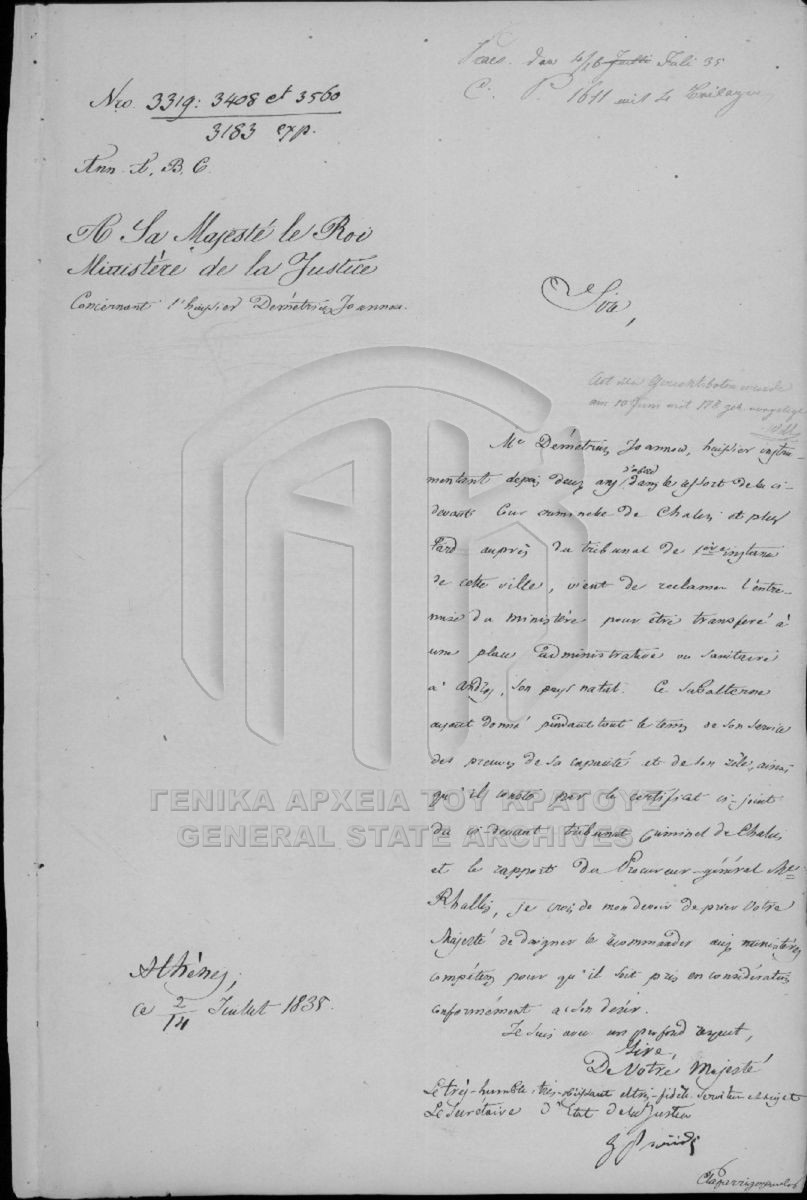 Nro. 3319: 3408 et 3560
3183 exp.
Ann. A, B, C.
A Sa Majesté le Roi
Ministère de la Justice
Concernant l'huissier Démétrius Joannou.
Praes. den 4/16 Juli 35
C. P. 1611 mit 4
Sire,
am 10 Juni mit
Mr Démétrius Joannou, huissier instru-
mentant depuis deux ans d'abord dans le ressort de la ci-
devant Cour criminelle de Chalcis et plus
tard auprès du tribunal de 1ère instance
de cette ville, vient de reclamer l'entre-
mise du ministère pour être transferé à
une place administrative ou sanitaire
à Andros, son pays natal. Ce subalterne
ayant donné pendant tout le tems de son service
des preuves de sa capacité et de son zèle, ainsi
qu'il conste par le certificat ci-joint
du ci-devant tribunal criminel de Chalcis
et le rapport du Procureur-général Mr
Rhallis, je crois de mon devoir de prier Votre
Majesté de daigner le recommander aux ministères
compétens pour qu'il soit pris en considération
conformément a son désir.
Je suis avec un profond respect,
Sire,
De Votre Majesté
Le très-humble, très-obéissant et très-fidèle serviteur et sujet
Le Secretaire d'Etat de la Justice
Athènes,
ce 2/14 Juillet 1835.
ΓΕΝΙΚΑ ΑΡΧΕΙΑ ΤΟΥ ΚΡΑΤΟΥΣ
GENERAL STATE ARCHIVES